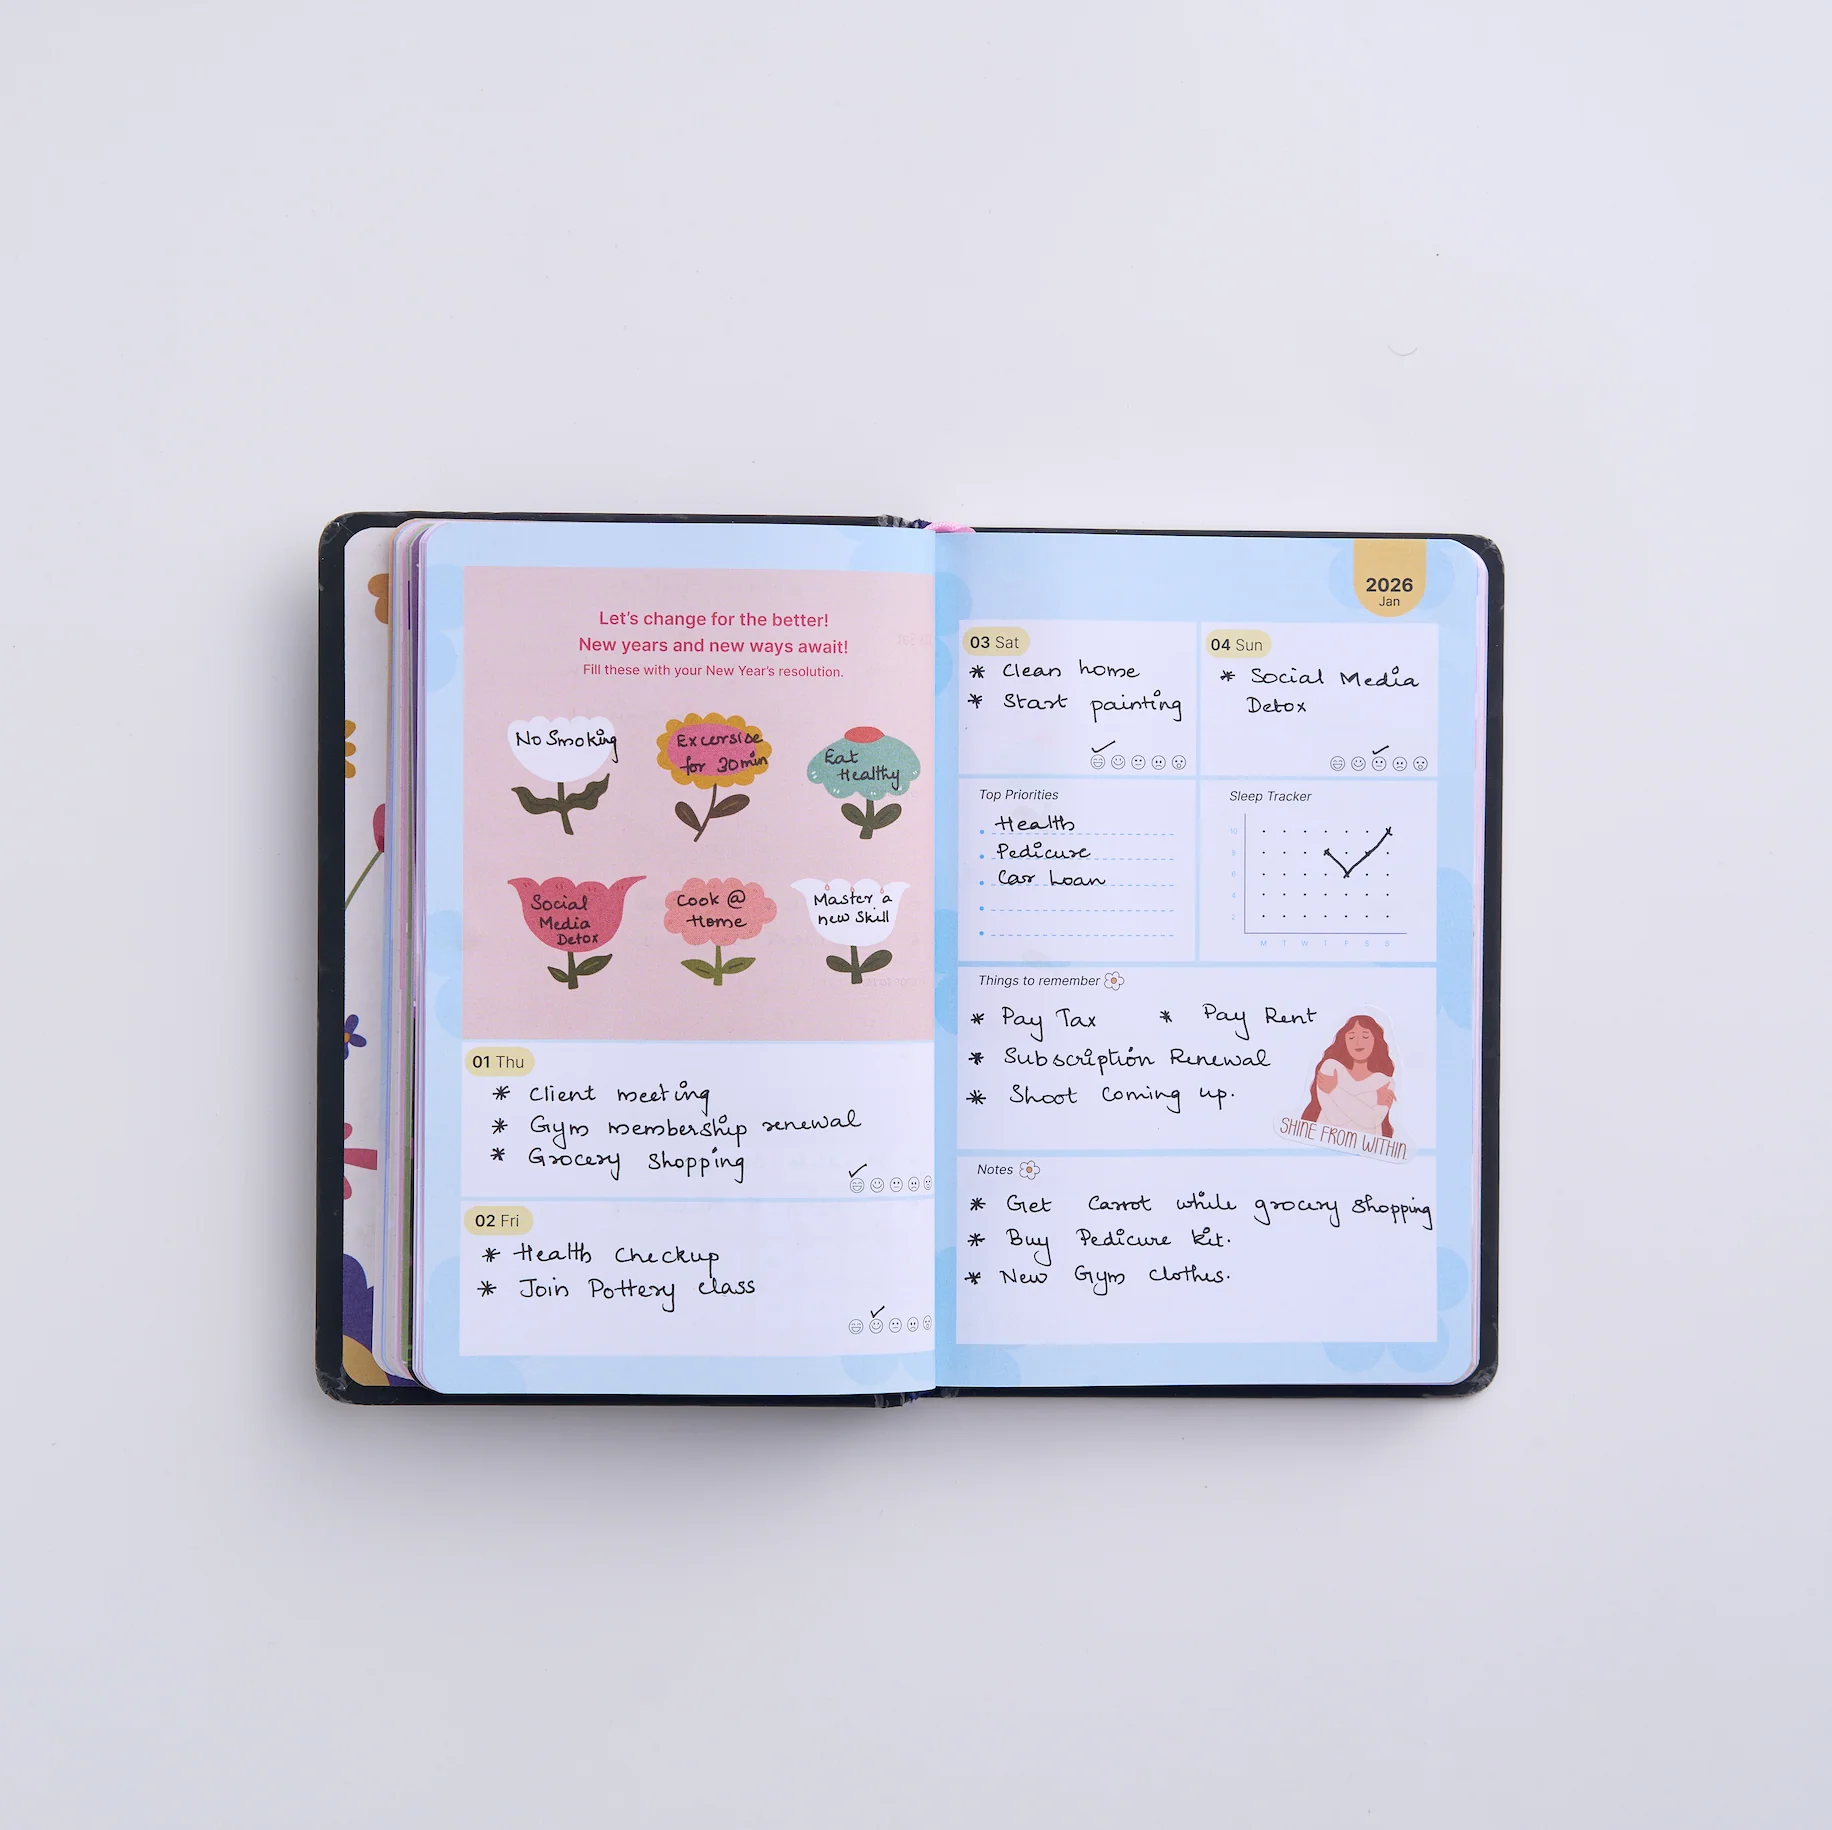 Let's change for the better!
New years and new ways await!
Fill these with your New Year's resolution.
No Smoking
Excersise
for 30min
Eat
Healthy
Social
Media
Detox
Cook @
Home
Master a
new Skill
01 Thu
* Client meeting
* Gym membership renewal
* Grocery Shopping
02 Fri
* Health Checkup
* Join Pottery class
2026
Jan
03 Sat
* Clean home
* Start painting
04 Sun
* Social Media
Detox
Top Priorities
Health
Pedicure
Car Loan
Sleep Tracker
10
8
6
4
2
M T W T F S S
Things to remember
* Pay Tax * Pay Rent
* Subscription Renewal
* Shoot Coming up.
SHINE FROM WITHIN
Notes
* Get Carrot while grocery shopping
* Buy Pedicure kit.
* New Gym Clothes.